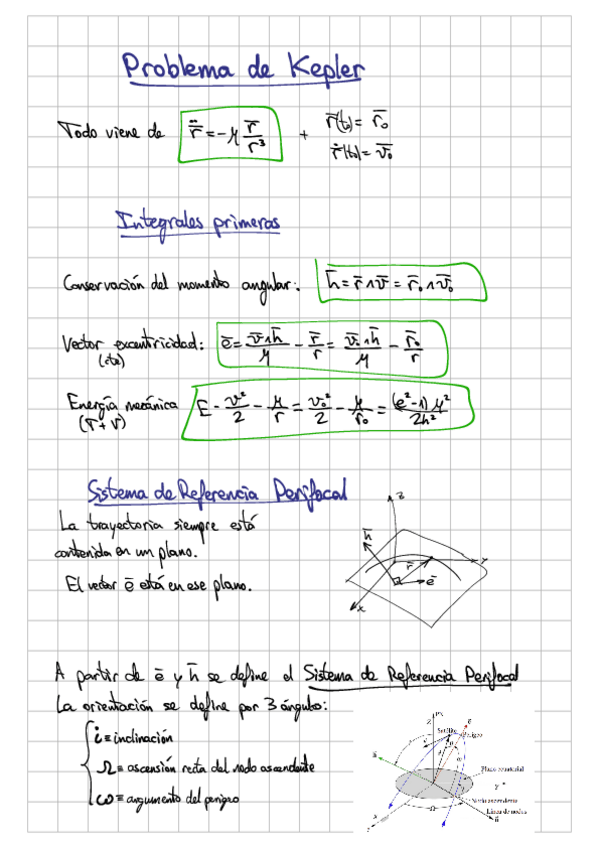 Problema de Kepler
Todo viene de r̈̄ = -μ r̄/r³ + r̄(t₀) = r̄₀
ṙ̄(t₀) = v̄₀
Integrales primeras
Conservación del momento angular: h̄ = r̄ ∧ v̄ = r̄₀ ∧ v̄₀
Vector excentricidad: ē = v̄∧h̄/μ - r̄/r = v̄₀∧h̄/μ - r̄₀/r
(cte)
Energía mecánica E - v²/2 - μ/r = v₀²/2 - μ/r₀ = (e²-1)μ²/2h²
(T+V)
Sistema de Referencia Perifocal
La trayectoria siempre está
contenida en un plano.
El vector ē está en ese plano.
z
h̄
r̄
y
ē
x
A partir de ē y h̄ se define el Sistema de Referencia Perifocal
La orientación se define por 3 ángulos:
i ≡ inclinación
Ω ≡ ascensión recta del nodo ascendente
ω ≡ argumento del perigeo
Satélite
Perigeo
Plano ecuatorial
Nodo ascendente
Línea de nodos
Ω